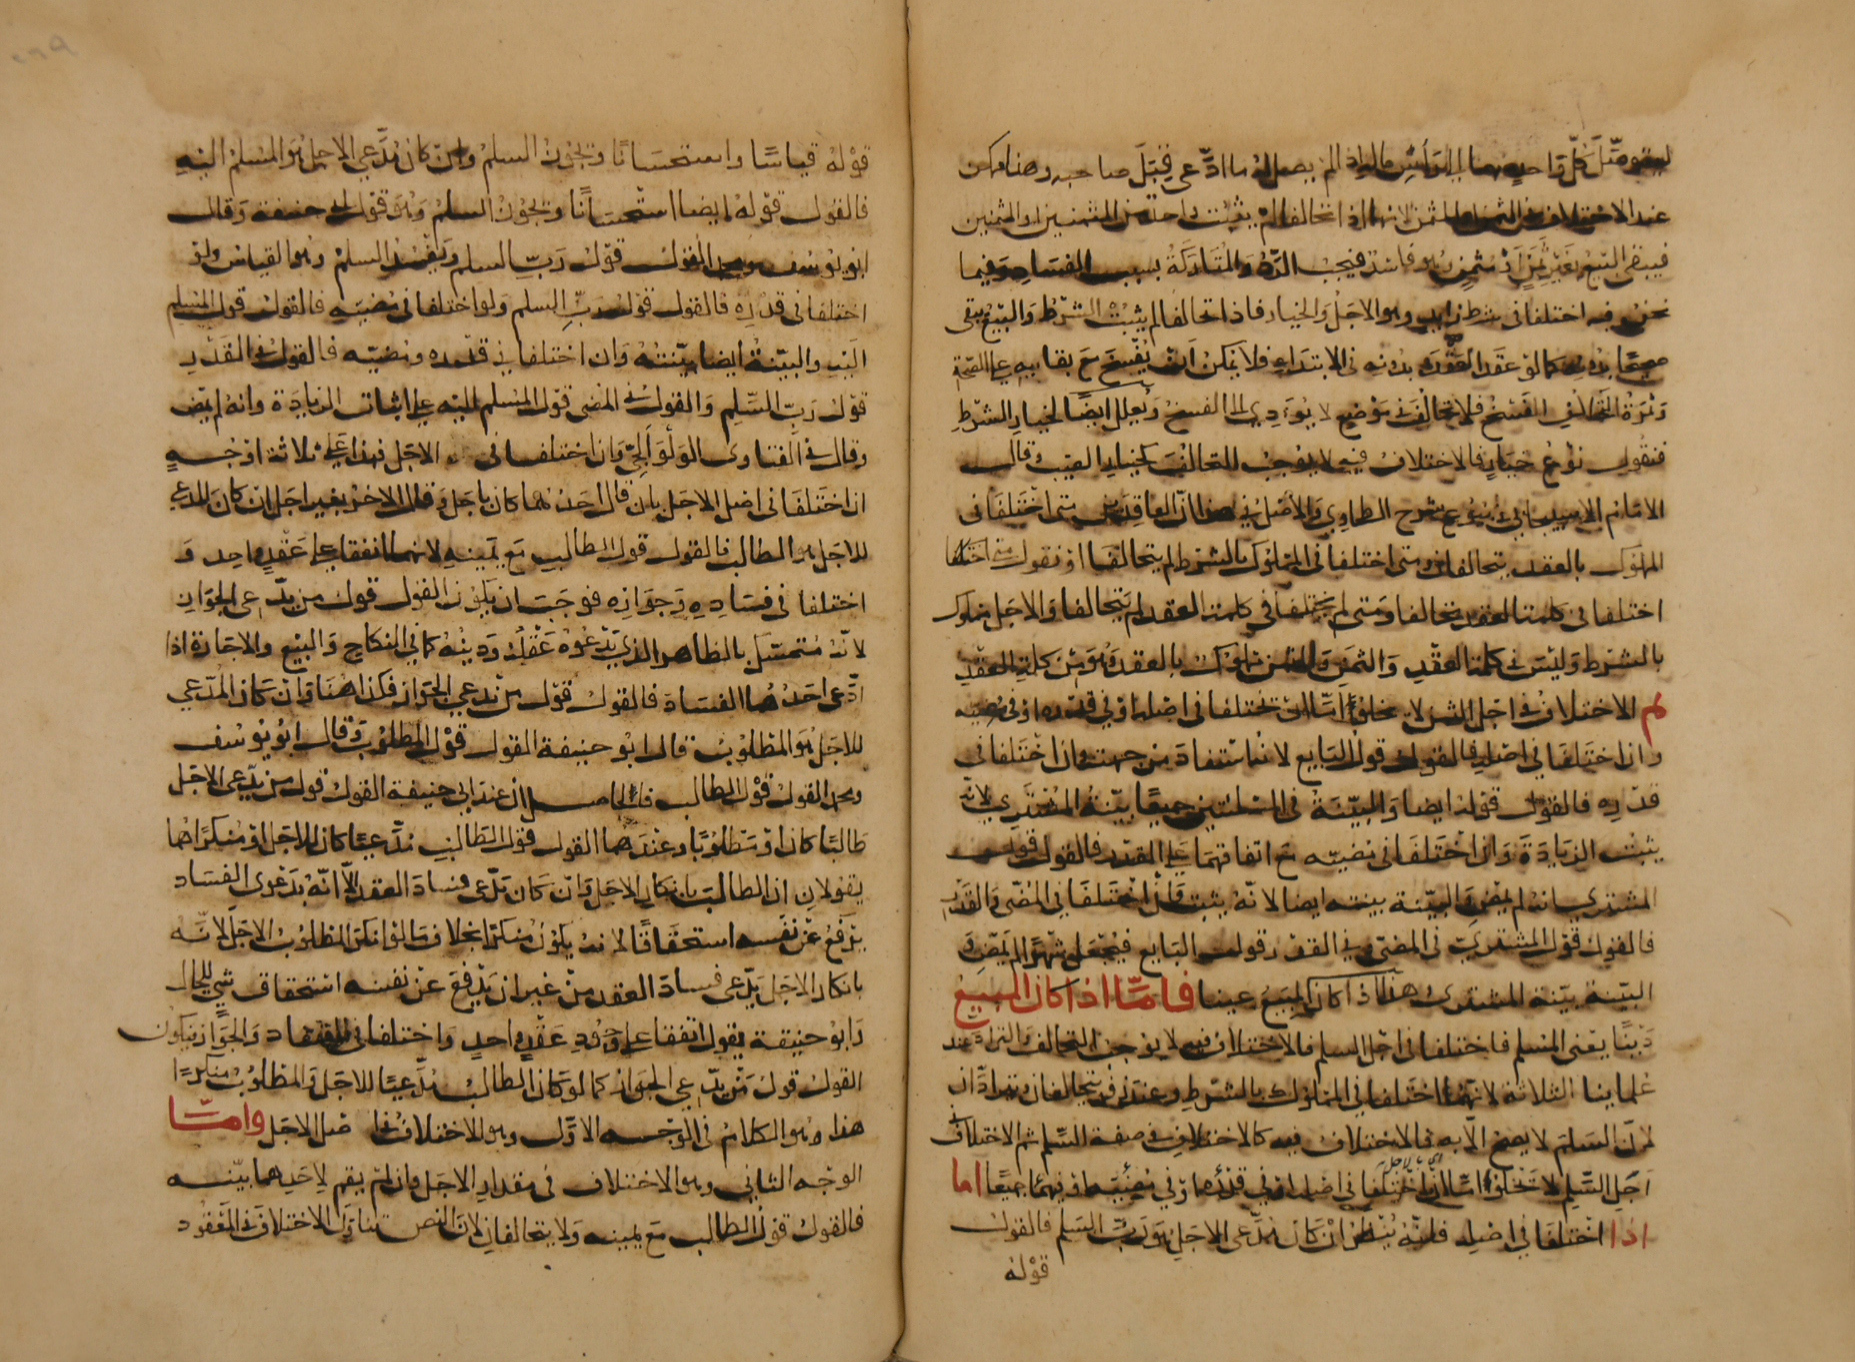 ليتوصل كل واحد منهما الى رأس ماله اذا لم يصل له ما ادعى قبل صاحبه وهذا ممكن
عند الاختلاف في الثمن او المثمن لانهما اذا تحالفا لم يثبت واحد من المثمنين او الثمنين
فيبقى البيع بغير ثمن او مثمن وهو فاسد فيجب الرد والمتاركة بسبب الفساد وفيما
نحن فيه اختلفا في شرط زايد وهو الاجل والخيار فاذا تحالفا لم يثبت الشرط والبيع يبقى
صحيحا بدونه كما لو عقد العقد بدونه في الابتداء فلا يمكن ان يفسخ مع بقايه على الصحة
وثمرة التحالف الفسخ فلا تحالف في موضع لا يؤدي الى الفسخ ويعلل ايضا لخيار الشرط
فنقول نوع خيار فالاختلاف فيه لا يوجب التحالف كخيار العيب قال
الامام الاسبيجابي في بيوع شرح الطحاوي والاصل في هذا ان العاقدين متى اختلفا في
المملوك بالعقد يتحالفان ومتى اختلفا في المملوك بالشرط لم يتحالفا او نقول متى اختلفا
اختلفا في كلمتا العقد تحالفا ومتى لم يختلفا في كلمتا العقد لم يتحالفا والاجل مملوك
بالشرط وليس في كلمتا العقد والثمن والمثمن مملوك بالعقد وهو من كلمة العقد
ثم الاختلاف في اجل الثمن لا يخلو اما ان يختلفا في اصله او في قدره او في مضيه
وان اختلفا في اصله فالقول قول البايع لانه استفاد من جهته وان اختلفا في
قدره فالقول قوله ايضا والبينة في المسئلتين جميعا بينة المشتري لانه
يثبت الزيادة وان اختلفا في مضيه مع اتفاقهما على المقدر فالقول قول
المشتري انه لم يمض والبينة بينته ايضا لانه يثبت وان اختلفا في المضي والقدر
فالقول قول المشتري في المضي وفي القدر قول البايع فيجعل شهرا لم يمض و
البينة بينة المشتري هذا اذا كان المبيع عينا فاما اذا كان المبيع
دينا يعني المسلم فاختلفا في اجل السلم فالاختلاف فيه لا يوجب التحالف والتراد عند
علماينا الثلاثة لانهما اختلفا في المملوك بالشرط وعند زفر يتحالفان ويترادان
لان السلم لا يصح الا به فالاختلاف فيه كالاختلاف في صفة السلم ثم الاختلاف في
اجل السلم لا يخلو اما ان اختلفا في اصله او في قدره او في مضيه او فيهما جميعا اما
اذا اختلفا في اصله فانه ينظر ان كان مدعي الاجل هو رب السلم فالقول
قوله
قوله قياسا واستحسانا ويجوز السلم وان كان مدعي الاجل هو المسلم اليه
فالقول قوله ايضا استحسانا ويجوز السلم وهو قول ابي حنيفة وقال
ابو يوسف ومحمد القول قول رب السلم ويفسد السلم وهو القياس ولو
اختلفا في قدره فالقول قول رب السلم ولو اختلفا في مضيه فالقول قول المسلم
اليه والبينة ايضا بينته وان اختلفا في قدره ومضيه فالقول في القدر
قول رب السلم والقول في المضي قول المسلم اليه على اثبات الزيادة وانه لم يمض
وقال في الفتاوى الولوالجي وان اختلفا في الاجل فهذا على ثلاثة اوجه
ان اختلفا في اصل الاجل بان قال احدهما كان باجل وقال الاخر بغير اجل ان كان المدعي
للاجل هو الطالب فالقول قول الطالب مع يمينه لانهما اتفقا على عقد واحد و
اختلفا في فساده وجوازه فوجب ان يكون القول قول من يدعي الجواز
لانه متمسك بالظاهر الذي يدعوه عقله ودينه كما في النكاح والبيع والاجارة اذا
ادعى احدهما الفساد فالقول قول من يدعي الجواز فكذا هنا وان كان المدعي
للاجل هو المطلوب قال ابو حنيفة القول قول المطلوب وقال ابو يوسف
ومحمد القول قول الطالب فالحاصل ان عند ابي حنيفة القول قول من يدعي الاجل
طالبا كان او مطلوبا وعندهما القول قول الطالب مدعيا كان للاجل او منكرا هما
يقولان ان الطالب بانكار الاجل وان كان يدعى فساد العقد الا انه بدعوى الفساد
يرفع عن نفسه استحقاقا لانه يكون منكرا بخلاف ما لو انكر المطلوب الاجل لانه
بانكار الاجل يدعى فساد العقد من غير ان يدفع عن نفسه استحقاق شي للحال
وابو حنيفة يقول اتفقا على وجود عقد واحد واختلفا في الفساد والجواز فيكون
القول قول من يدعي الجواز كما لو كان الطالب مدعيا للاجل والمطلوب منكرا
هذا وهو الكلام في الوجه الاول وهو الاختلاف في اصل الاجل واما
الوجه الثاني وهو الاختلاف في مقدار الاجل فان لم يقم لاحدهما بينة
فالقول قول الطالب مع يمينه ولا يتحالفان لان النص تناول الاختلاف في المعقود